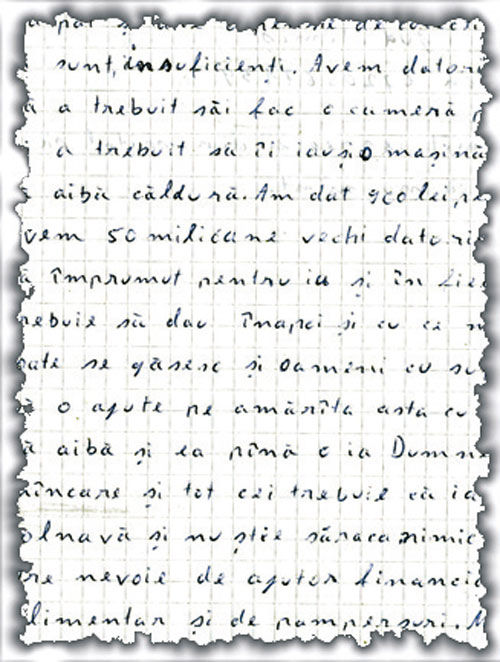 sunt, insuficienți. Avem dator
a trebuit săi fac o cameră
a trebuit să îi iau și o mașină
aibă căldură. Am dat 900 lei, pe
vem 50 milioane vechi datori
împrumut pentru ia și în fie
rebuie să dau înapoi și cu ce m
oate se găsesc și oameni cu su
o ajute pe amărîta asta cu
aibă și ea pînă o ia Dumn
mîncare și tot cei trebuie că ia
olnavă și nu știe săraca nimic
re nevoie de ajutor financia
limentar și de pampersuri.